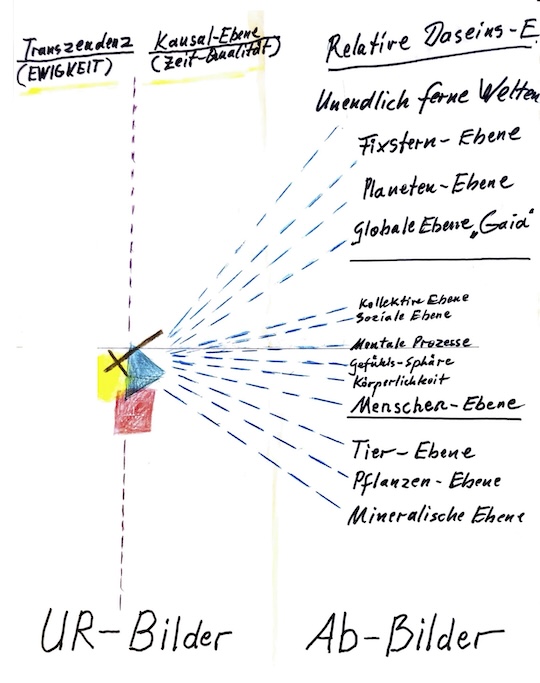 Transzendenz
(EWIGKEIT)
Kausal-Ebene
(Zeit-Qualität)
Relative Daseins-E
Unendlich ferne Welten
Fixstern-Ebene
Planeten-Ebene
Globale Ebene „Gaia"
Kollektive Ebene
Soziale Ebene
Mentale Prozesse
Gefühls-Sphäre
Körperlichkeit
Menschen-Ebene
Tier-Ebene
Pflanzen-Ebene
Mineralische Ebene
UR-Bilder
Ab-Bilder